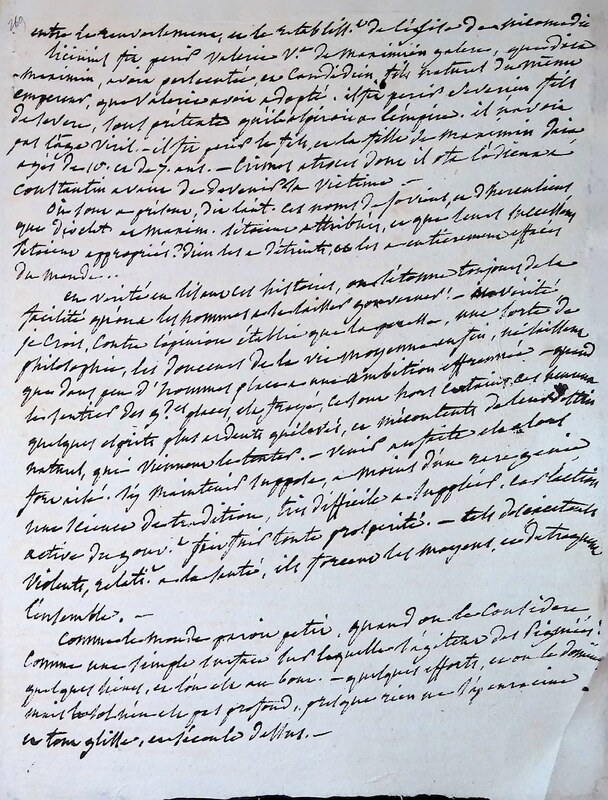 269
entre le renversement, et le rétablisst de l'église de nicomédie
licinius fit périr Valérie Ve de Maximien galere, que daia
Maximin, avoit persécutée, et Candidien, fils naturel du même
empereur, que Valérie avoit adopté. il fit périr Severien fils
de Severe, sous prétexte qu'il aspiroit à l'empire. il n'avoit
pas l'âge viril. – il fit périr le fils, et la fille de Maximin daia
agés de et de 7 ans. – Crimes atroces dont il ota l'odieux à
Constantin avant de devenir sa victime. –
Où sont a présent, dit lact. ces noms de Jovius, et d'herculius
que diocles et maxim. s'étoient attribués, et que leurs successeurs
s'étoient appropriés? dieu les a détruits, et les a entièrement effacés
du monde...
en vérité en lisant ces histoires, on s'étonne toujours de la
facilité qu'ont les hommes a se laisser gouverner! – vérité
je crois, contre l'opinion établie que la une sorte de
philosophie, les douceurs de la vie moyenne enfin, ne laissent
que dans peu d'hommes place a une ambition effrennée – quand
le sentier des gdes places, est frayé, ce sont hors
quelques esprits plus ardents qu'élevés, et mécontents de leur
naturel, que viennent le tenter. – venir au faîte est alors
fort aisé. s'y maintenir suppose, a moins d'un rare genie
une science de tradition, très difficile a suppléer. car l'action
active du gouvt fait toute prospérité. – tels
violents, relatt a la santé, ils forcent les moyens, et détraquent
l'ensemble. –
Comme le monde paroit petit, quand on le Considère
Comme une simple surface sur laquelle s'agitent des
quelques lieues, et l'on est au bout. – quelques efforts, et on le domine
mais le sol n'en est pas profond, presque rien ne s'y enracine
et tout glisse, et s'écoule dessus. –